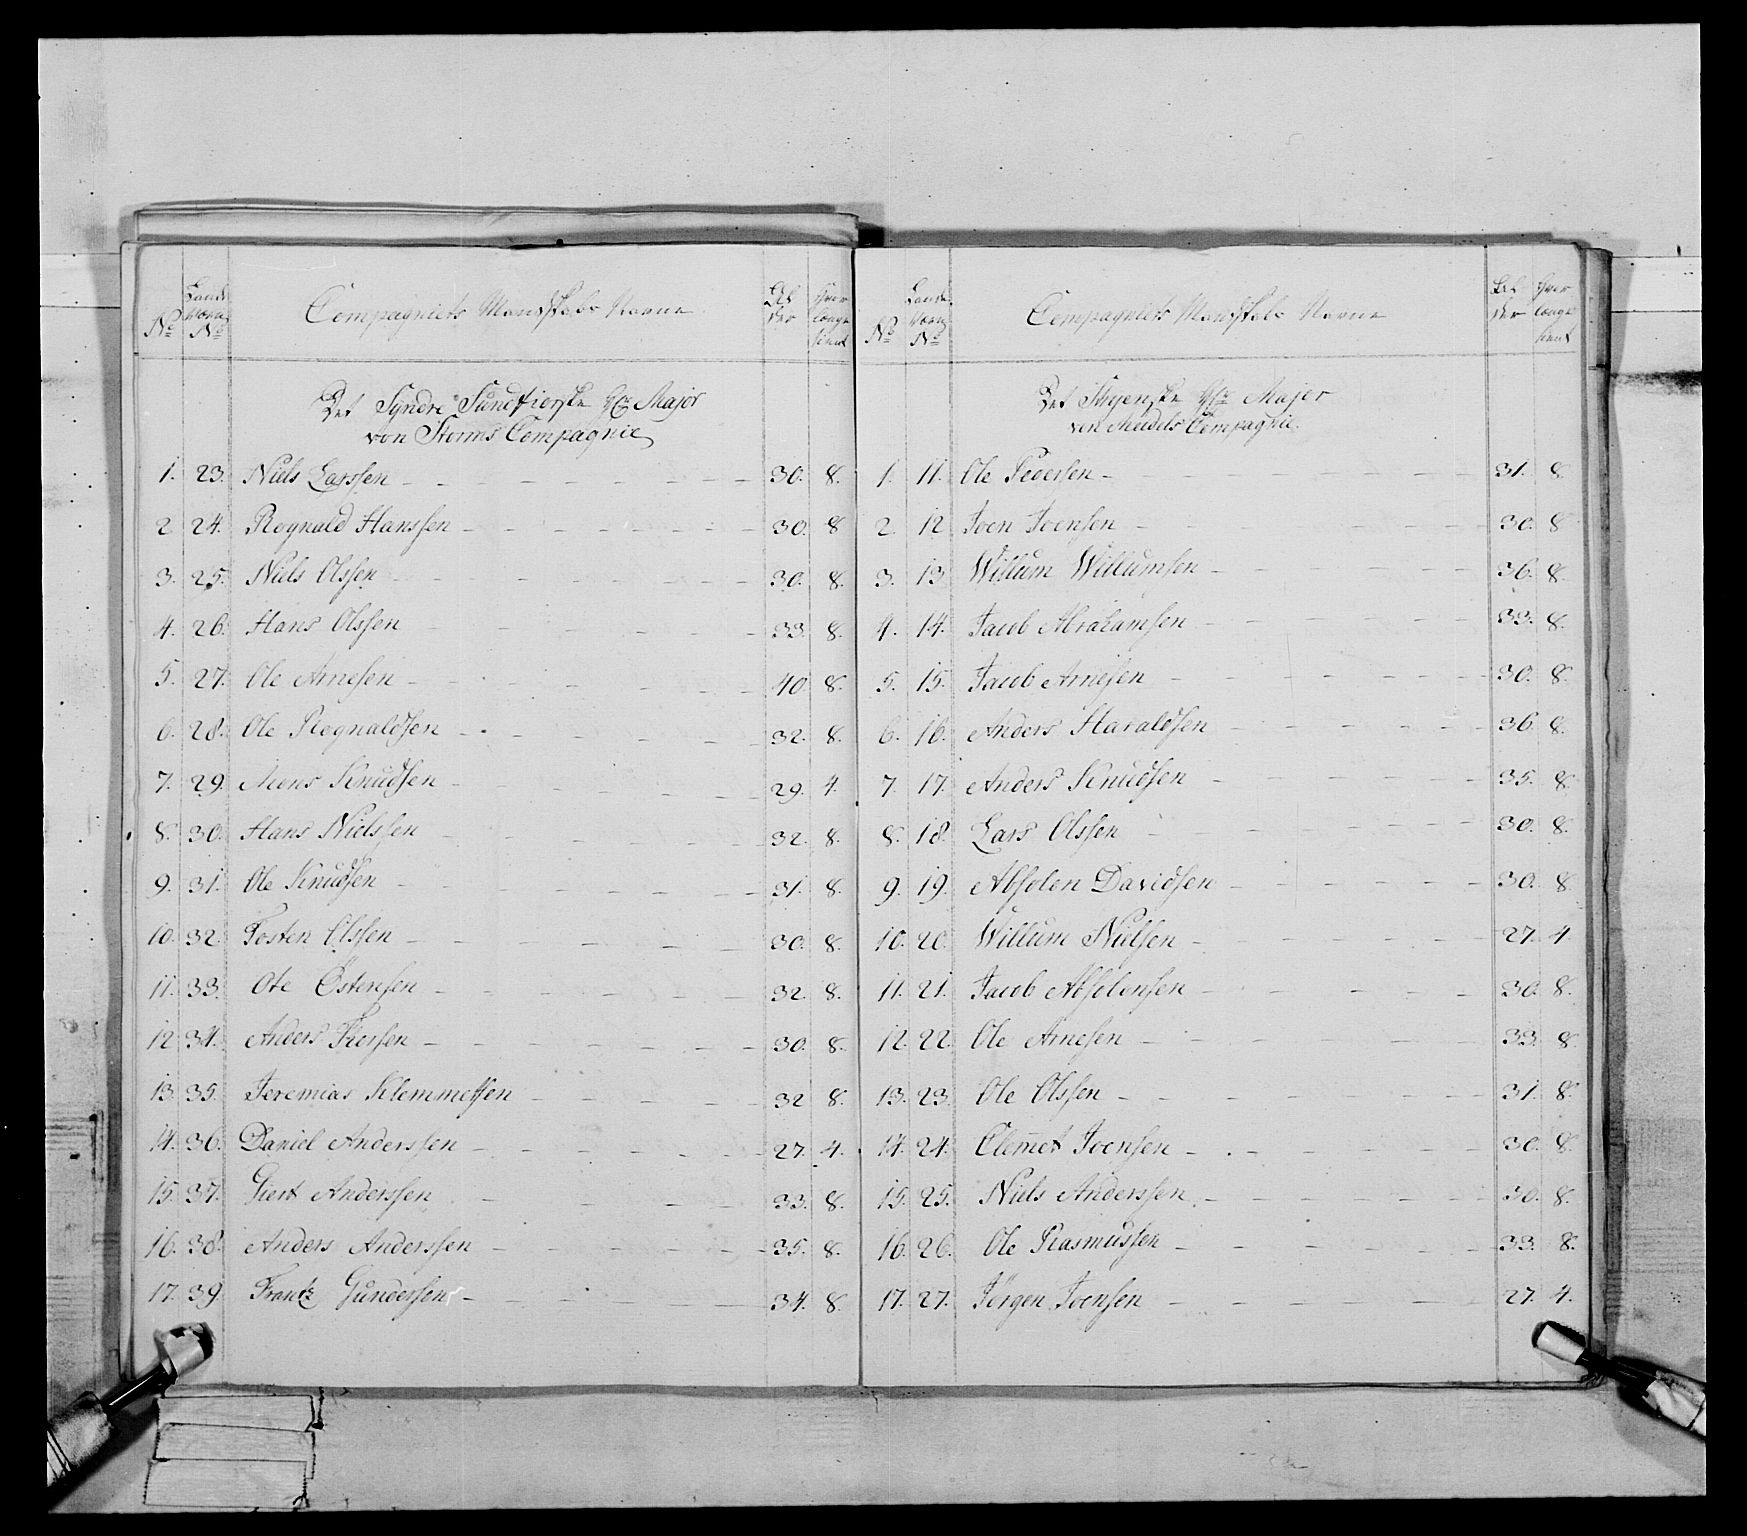 No
Land
Værn
No
Compagniets Mandskabs Navne
Al
der
hvor
længe
tient
Det Syndre Sundfiorske Hr Major
von Storms Compagnie
1. 23. Niels Larssen 30. 8.
2 24. Rognald Hanssen 30. 8
3. 25. Niels Olssen 30. 8.
4. 26. Hans Olssen 33. 8.
5. 27. Ole Arnesen 40 8.
6. 28. Ole Rognaldsen 32. 8.
7. 29. Mons Knudsen 29. 4.
8. 30. Hans Nielssen 32. 8.
9. 31. Ole Knudsen 31. 8.
10. 32. Tosten Olssen 30. 8.
11. 33. Ole Østensen 32. 8.
12 34. Anders 30. 8.
13 35. Jeremias Klemmetsen 32 8.
14. 36. Daniel Anderssen 27. 4.
15. 37. Giert Anderssen 33. 8.
16. 38. Anders Anderssen 35. 8.
17. 39. Frantz Gunderssen 34. 8.
No
Lande
Værn
No
Compagniets Mandskabs Navne
Al
der
hvor
længe
tient
Det Hr Major
von Compagnie.
1. 11. Ole Pedersen 31. 8
2. 12 Joen Joensen 30. 8
3. 13 Willum Willumsen 36. 8.
4. 14. Jacob Abrahamsen 33. 8.
5. 15. Jacob Arnesen 30. 8.
6. 16. Anders Haraldsen 36 8.
7. 17. Anders Knudsen 35. 8.
8. 18. Lars Olssen 30. 8.
9. 19. Absolon Davidsen 30. 8.
10. 20. Willum Nielsen 27. 4.
11. 21. Jacob Absolonsen 30. 8.
12. 22. Ole Arnesen 33. 8.
13. 23. Ole Olssen 31. 8.
14. 24. Clemet Joensen 30. 8.
15. 25. Niels Anderssen 30. 8.
16. 26. Ole Rasmussen 33. 8.
17. 27. Jörgen Joensen 27. 4.